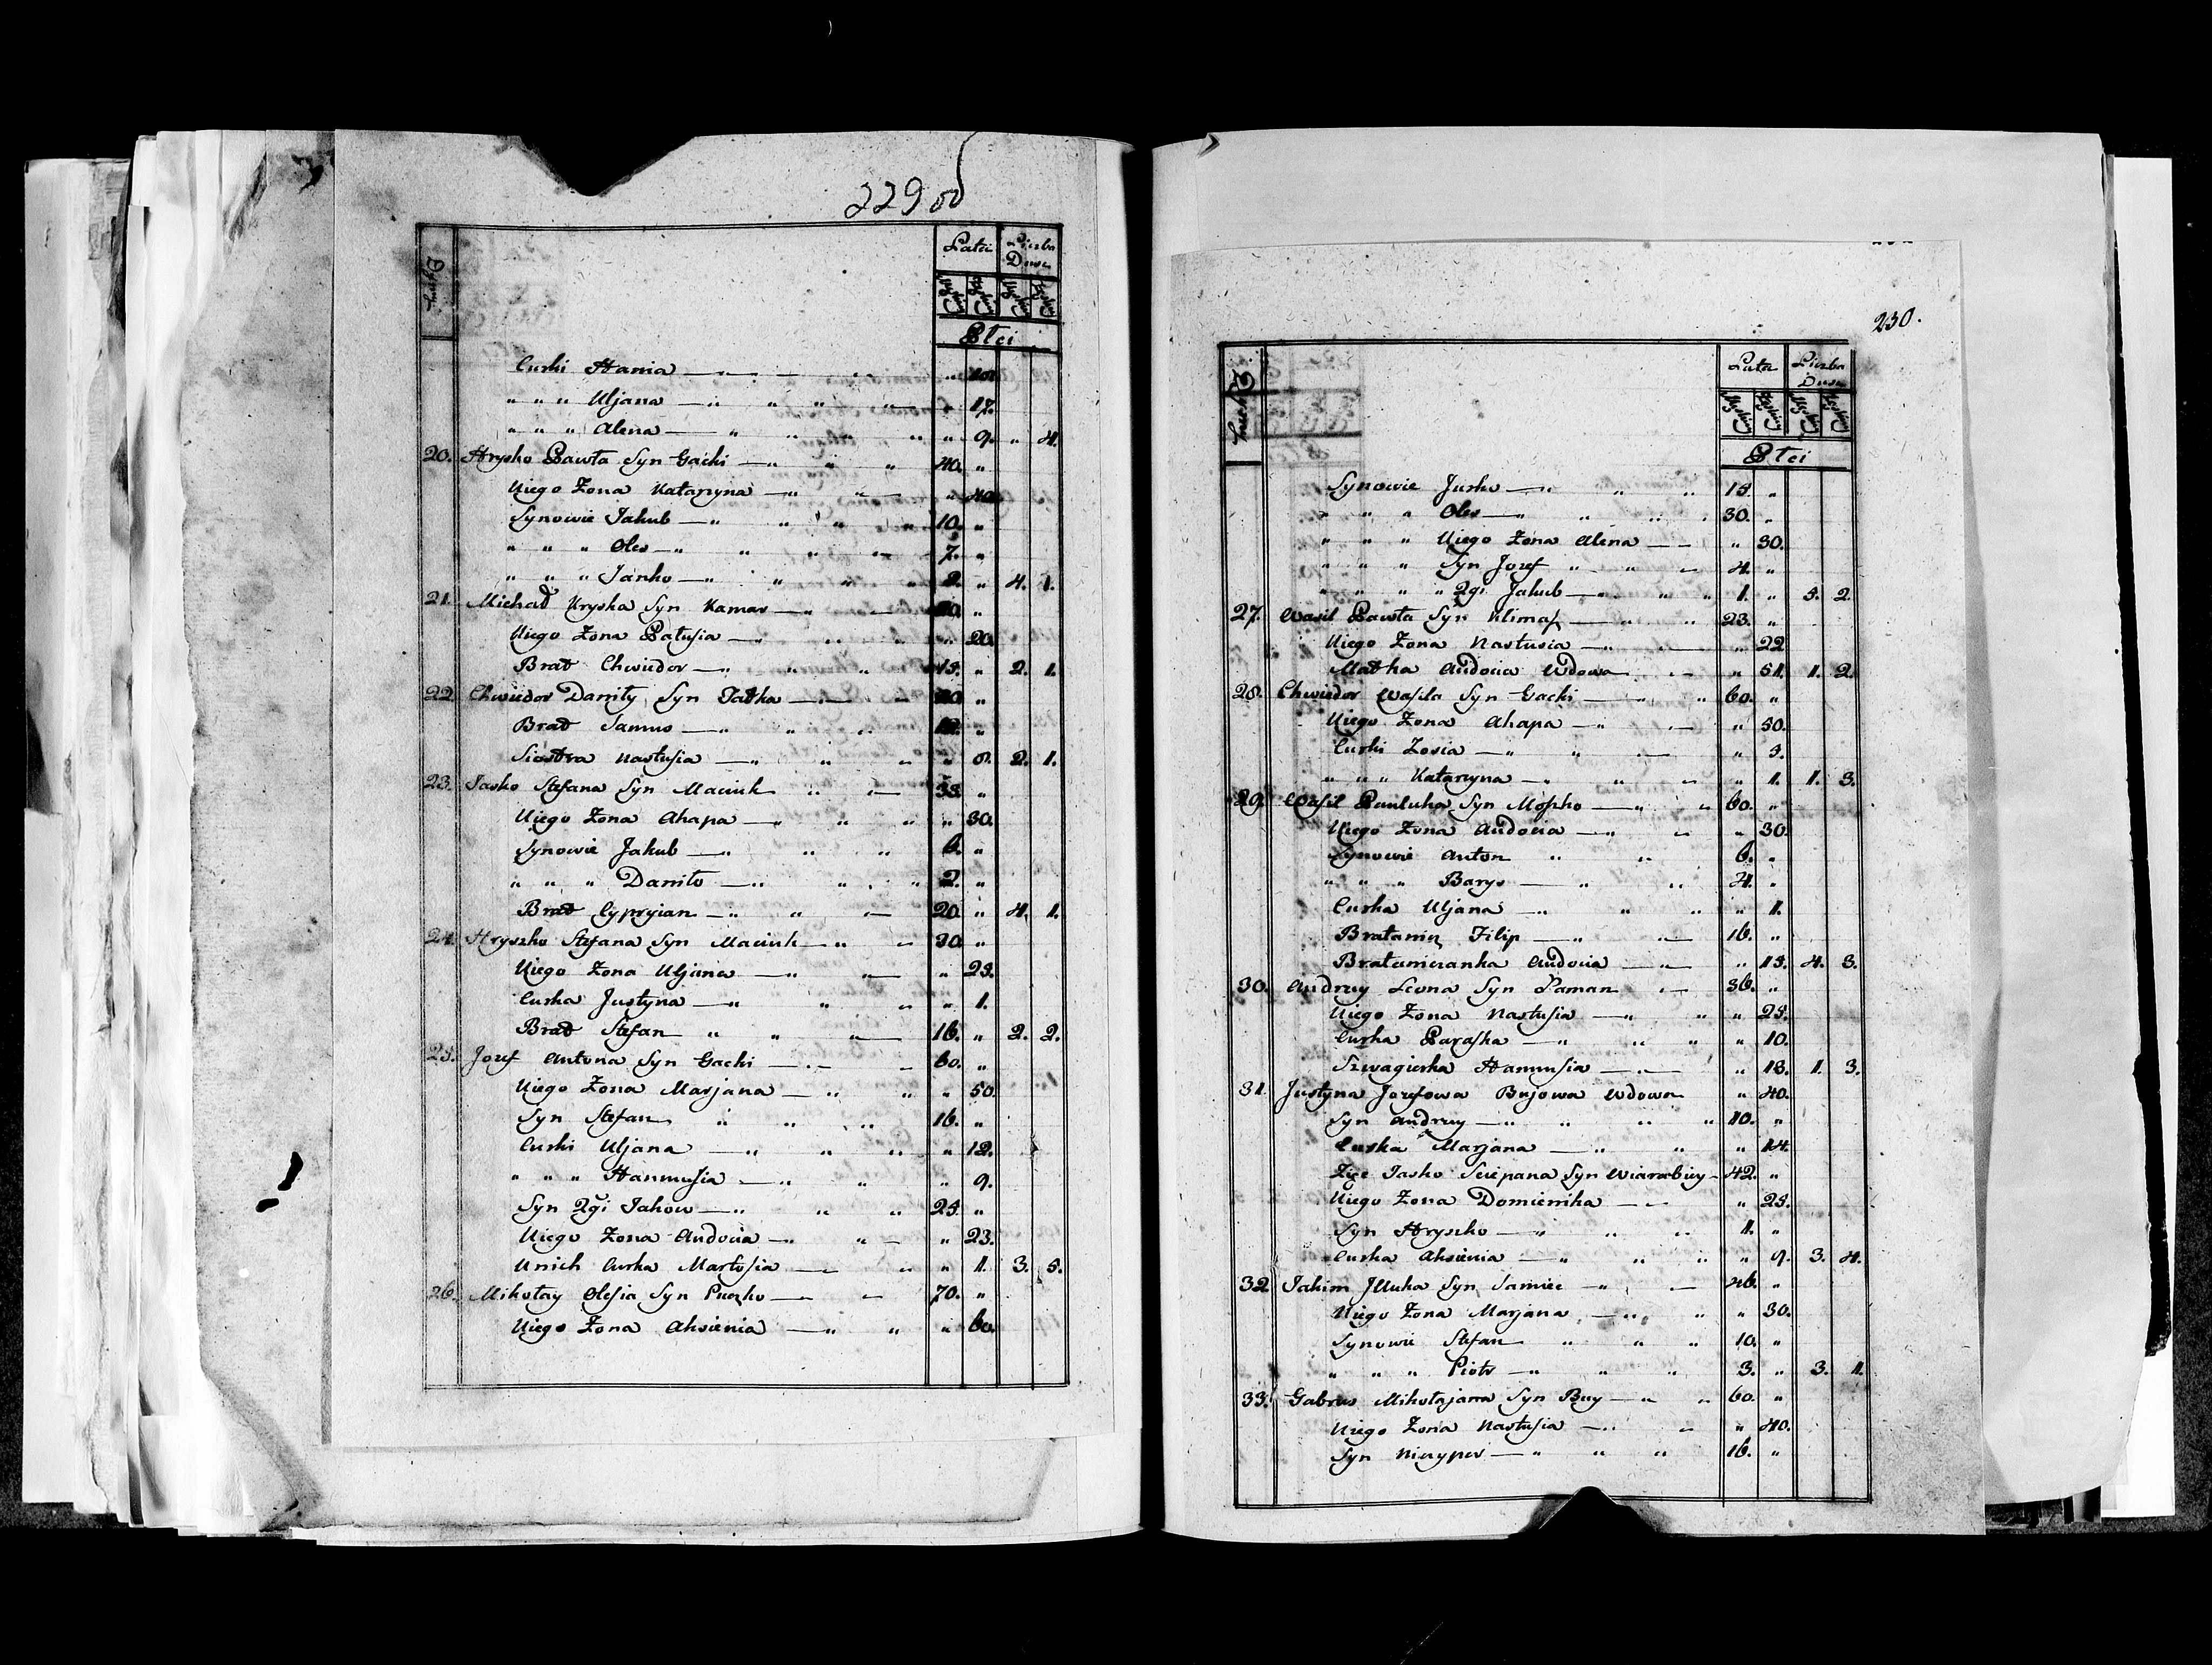 229 об
Dymy Lata Liczba Dusz
Męskiey Żeńskiey Męskiey Żeńskiey
Płci
Curki Hania " 20.
" " " Uljana " 17.
" " " Alena " 9. " 4.
20. Hrysko Pawła Syn Gacki 40. "
U iego Żona Katarzyna " 40.
Synowie Jakub 10. "
" " " Oles 7. "
" " " Janko 2. " 4. 1.
21. Michał Kryska Syn Kamar 20. "
U iego Żona Patusia " 20.
Brat Chwiedor 15. " 2. 1.
22. Chwiedor Daniły Syn Jatka 20. "
Brat Samus 12. "
Siostra Nastusia " 8. 2. 1.
23. Jasko Stefana Syn Maciuk 35. "
U iego Żona Ahapa " 30.
Synowie Jakub 6. "
" " " Daniło 2. "
Brat Cypryian 20. " 4. 1.
24. Hryszko Stefana Syn Maciuk 30. "
U iego Żona Uljana " 25.
Curka Justyna " 1.
Brat Stefan 16. " 2. 2.
25. Jozef Antona Syn Gacki 60. "
U iego Żona Marjana " 50.
Syn Stefan 16. "
Curki Uljana " 12.
" " " Hannusia " 9.
Syn 2gi Jakow 25. "
U iego Żona Audocia " 23.
U nich Curka Martusia " 1. 3. 5.
26. Mikołay Olesia Syn Puczko 70. "
U iego Żona Aksienia " 60.
230.
Dymy Lata Liczba Dusz
Męskiey Żeńskiey Męskiey Żeńskiey
Płci
Synowie Jurko 15. "
" " " Oles 30. "
" " " U iego Żona Alena " 30.
" " " Syn Jozef 4. "
" " " " 2gi Jakub 1. " 5. 2.
27. Wasil Pawła Syn Klimaf 23. "
U iego Żona Nastusia " 22
Matka Audocia Wdowa " 51. 1. 2.
28. Chwiedor Wasila Syn Gacki 60. "
U iego Żona Ahapa " 50.
Curki Zosia " 3.
" " " Katarzyna " 1. 1. 3.
29. Wasil Pauluka Syn Mosko 60. "
U iego Żona Audocia " 30.
Synowie Anton 6. "
" " " Barys 4. "
Curka Uljana " 1.
Bratanicz Filip 16. "
Bratanieranka Audocia " 15. 4. 3.
30. Andrey Leona Syn Paman 36. "
U iego Żona Nastusia " 25.
Curka Paraska " 10.
Szwagierka Hannusia " 18. 1. 3.
31. Justyna Jozefowa Bujowa Wdowa " 40.
Syn Andrey 10. "
Curka Marjana " 14.
Zięc Jasko Sciepana Syn Wiarabiey 42. "
U iego Żona Domienika " 25.
Syn Hryszko 1. "
Curka Aksienia " 9. 3. 4.
32. Jakim Jlluka Syn Samiec 46. "
U iego Żona Marjana " 30.
Synowie Stefan 10. "
" " " Piotr 3. " 3. 1.
33. Gabrus Mikołajana Syn Buy 60. "
U iego Żona Nastusia " 40.
Syn Niczypor 16. "